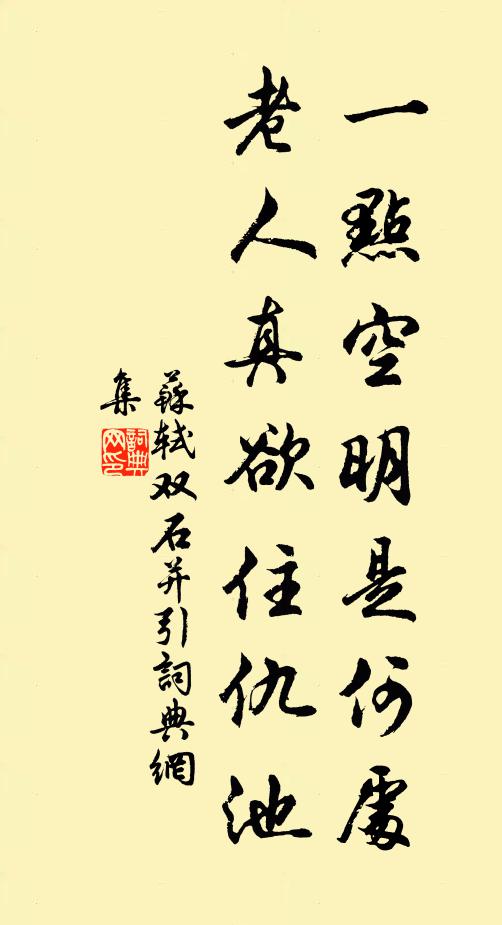 一點空明是何處
老人真欲住仇池
蘇軾双石并引詞典網
集
詞典网印